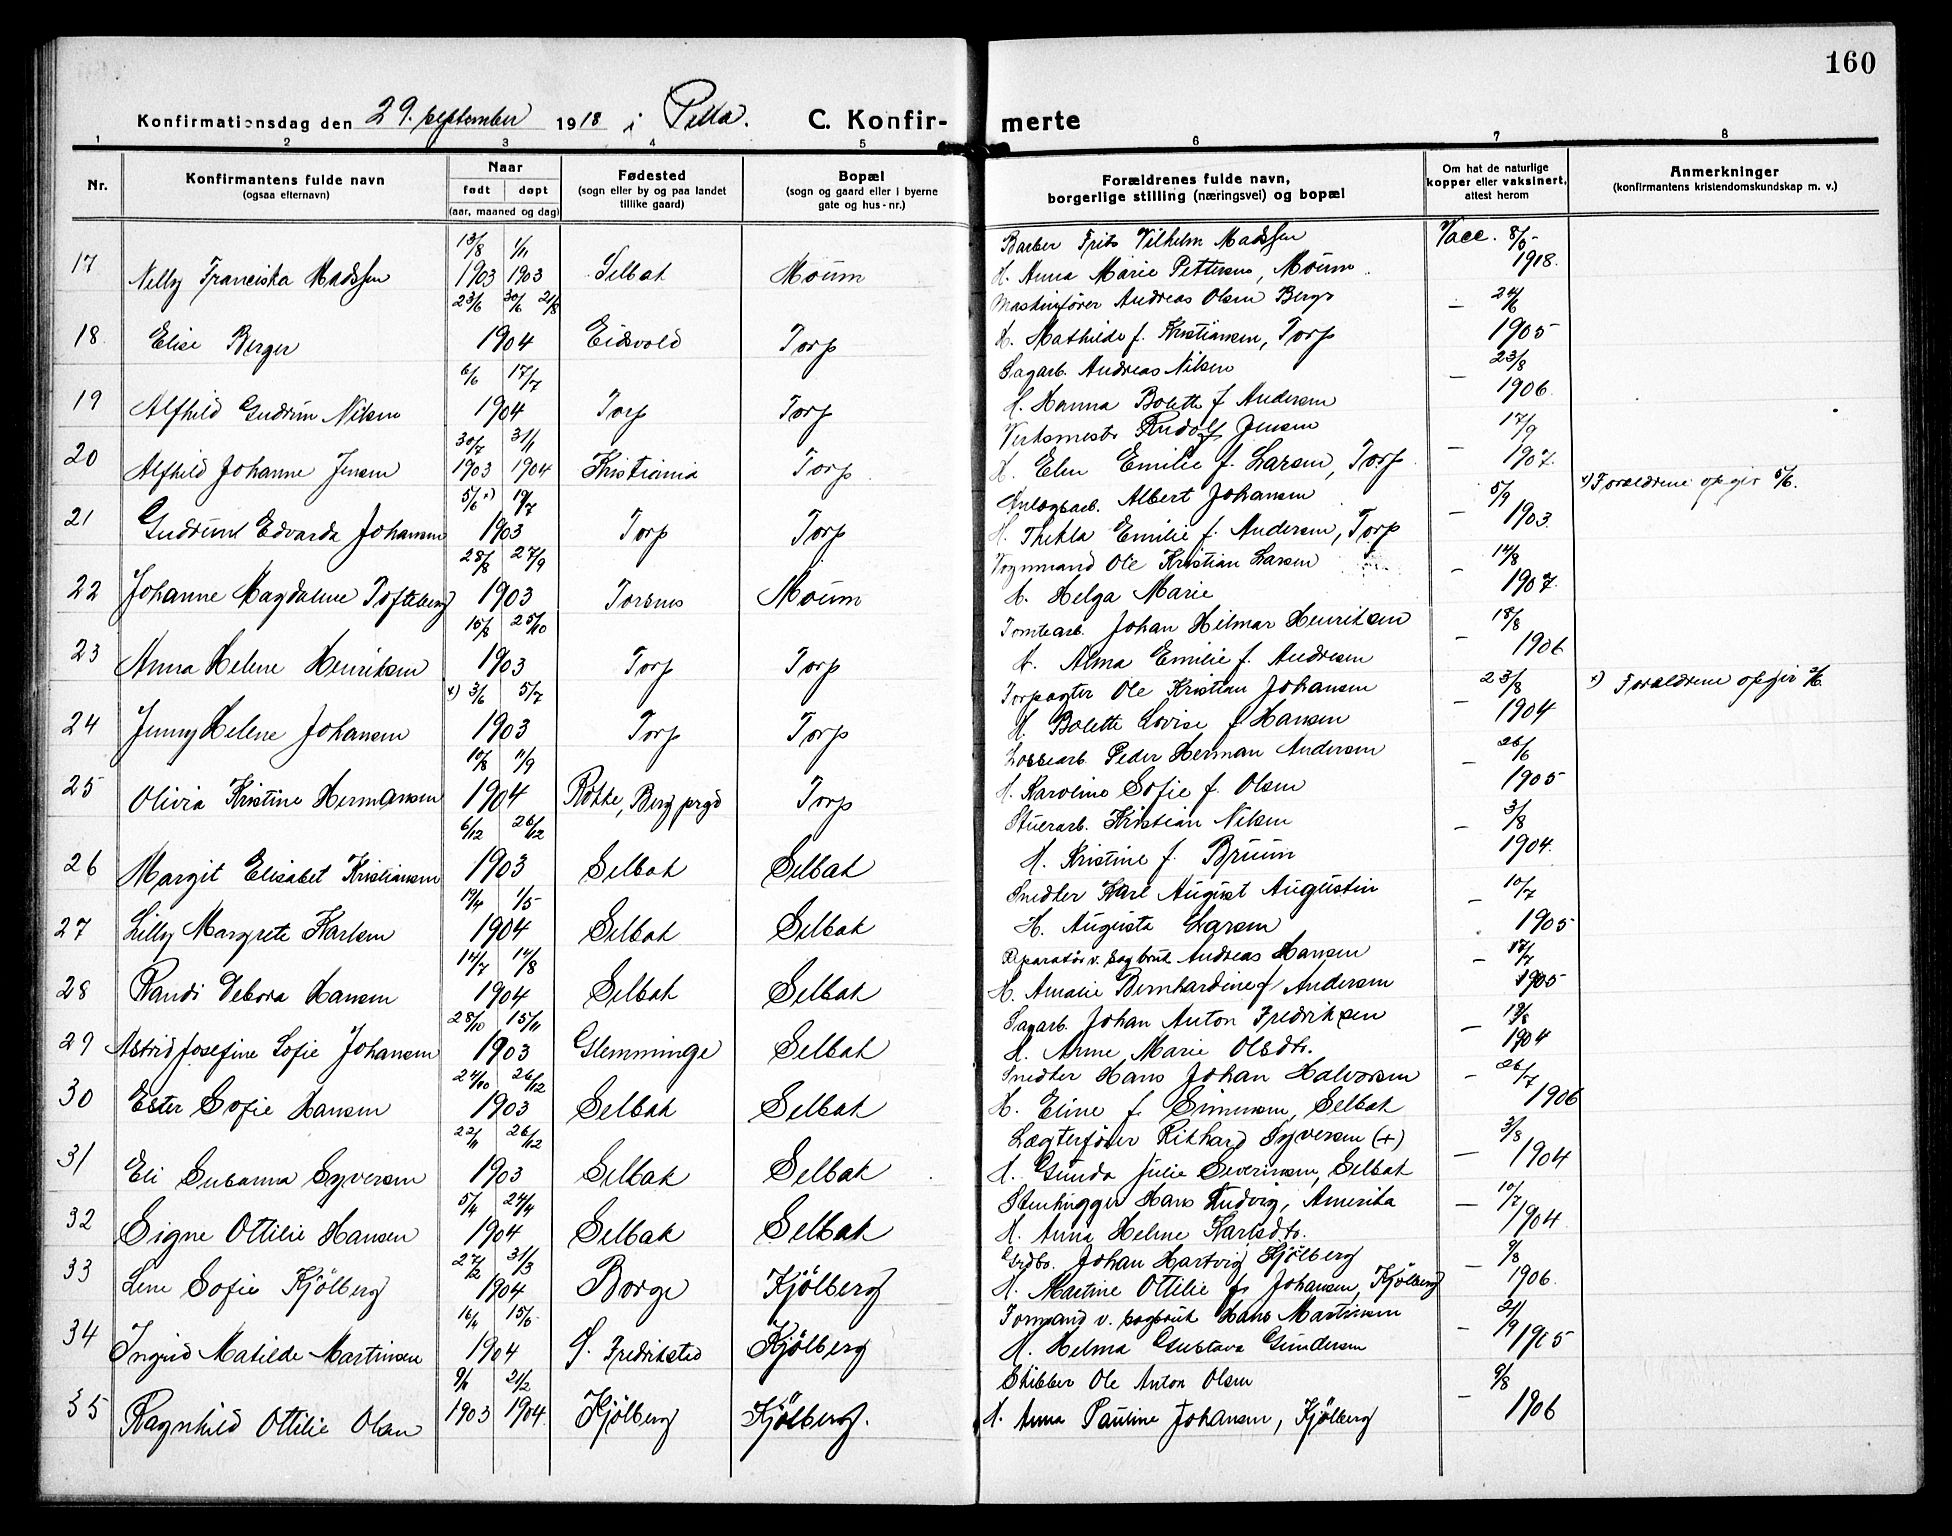 160
Konfirmationsdag den 29. september 1918 i Pella. C. Konfir- merte
1 2 3 4 5 6 7 8
Nr. Konfirmantens fulde navn (ogsaa efternavn) Naar født døpt (aar, maaned og dag) Fødested (sogn eller by og paa landet tillike gaard) Bopæl (sogn og gaard eller i byerne gate og hus-nr.) Forældrenes fulde navn, borgerlige stilling (næringsvei) og bopæl Om hat de naturlige kopper eller vaksinert, attest herom Anmerkninger (konfirmantens kristendomskundskap m. v.)
13/8 1/11 Barber Frits Vilhelm Madssen Vacc. 8/5-
17 Nelly Franciska Madssen 1903 1903 Selbak Moum H. Anna Marie Pettersen, Moum. 1918.
23/6 30/6 21/8 Maskinfører Andreas Olsen Berger — 24/6
18. Elise Berger 1904 Eidsvold Torp H. Mathilde f. Kristiansen, Torp 1905
6/6 17/7 Sagarb. Andreas Nilsen — 23/8
19 Alfhild Gudrun Nilsen 1904 Torp Torp H. Hanna Bolette f Andersen 1906
30/7 31/1 Verksmester Rudolf Jensen 17/9
20 Alfhild Johanne Jensen 1903 1904 Kristiania Torp H. Elen Emilie f. Larsen, Torp — 1907.
5/6 x) 19/7 Anlægsarb. Albert Johansen 5/9 x) Forældrene opgir 5/6.
21 Gudrund Edvarda Johansen 1903 Torp Torp H. Thekla Emilie f. Andersen, Torp — 1903.
28/8 27/9 Vognmand Ole Kristian Larsen 14/8
22 Johanne Magdalene Tofteberg 1903 Torsnes Moum H. Helga Marie — 1907.
15/8 25/10 Tomtearb. Johan Hilmar Henriksen 18/8
23 Anna Helene Henriksen 1903 Torp Torp H. Alma Emilie f. Andresen — 1906
x) 3/6 5/7 Torpagter Ole Kristian Johansen 23/8 x) Forældrene opgir
24 Jenny Helene Johansen 1903 Torp Torp H. Bolette Lovise f Hansen — 1904
10/8 11/9 Lossearb Peder Herman Andersen 26/6
25 Olivia Kristine Hermansen 1904 Rokke, Berg prgd Torp H. Karoline Sofie f. Olsen — 1905
6/12 26/12 Stuerarb. Kristian Nilsen 3/8
26 Margit Elisabet Kristiansen 1903 Selbak Selbak H. Kristine f. Bruun — 1904.
19/4 1/5- Snedker Karl August Augustin 10/7
27 Lilly Margrete Karlsen 1904 Selbak Selbak H. Augusta Larsen — 1905
14/7 14/8 Reparatør v. sagbruk Andreas Hansen 17/7
28 Randi Debora Hansen 1904 Selbak Selbak H. Amalie Bernhardine f Andersen — 1905
28/10 15/11 Sagarb. Johan Anton Fredriksen 19/8
29 Astrid Josefine Sofie Johansen 1903 Glemminge Selbak H. Anne Marie Olsdtr. — 1904
24/10 26/12 Snedker Hans Johan Halvorsen — 26/7
30 Ester Sofie Hansen 1903 Selbak Selbak H. Eline f. Simensen, Selbak 1906
22/11 26/12 Lægterfører Rikhard Syversen (+) 3/8
31 Eli Susanna Syversen 1903 Selbak Selbak H. Gunda Julie Severinsen, Selbak — 1904
5/4 24/4 Stenhugger Hans Ludvig, Amerika 10/7
32 Signe Ottilie Hansen 1904 Selbak Selbak H. Anna Helene Karlsdtr. — 1904
27/2 31/3 Grdbr. Johan Hartvig Kjölberg 9/8
33 Lene Sofie Kjölberg 1904 Borge Kjölberg H. Martine Ottilie f. Johansen, Kjölberg — 1906.
16/4 15/5 Formand v. sagbruk Hans Martinsen 21/9
34 Ingrid Matilde Martinsen 1904 S. Fredrikstad Kjölberg H. Helma Gustava Gundersen — 1905
9/11 21/2 Skibber Ole Anton Olsen 9/8
35 Ragnhild Ottilie Olsen 1903 1904 Kjölberg Kjölberg. H. Anna Pauline Johansen, Kjölberg — 1906